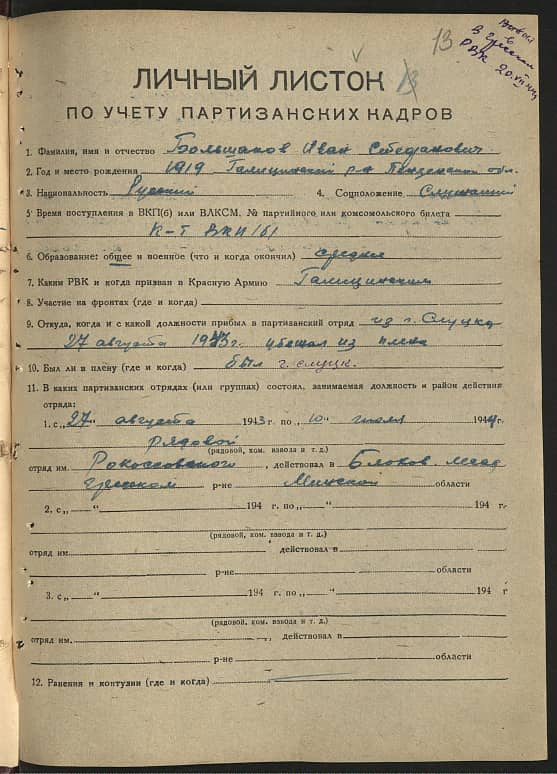 13
в
РВК 20.VII 44г
ЛИЧНЫЙ ЛИСТОК 13
ПО УЧЕТУ ПАРТИЗАНСКИХ КАДРОВ
1. Фамилия, имя и отчество Большаков Иван Стефанович
2. Год и место рождения 1919 Галицинский р-н Пензенской обл.
3. Национальность Русский 4. Соцположение Служащий
5. Время поступления в ВКП(б) или ВЛКСМ, № партийного или комсомольского билета
К-т ВКП/б/
6. Образование: общее и военное (что и когда окончил) среднее
7. Каким РВК и когда призван в Красную Армию Галицинским
8. Участие на фронтах (где и когда)
9. Откуда, когда и с какой должности прибыл в партизанский отряд из г. Слуцка
27 августа 1943г. убежал из плена
10. Был ли в плену (где и когда) был г. слуцк.
11. В каких партизанских отрядах (или группах) состоял, занимаемая должность и район действия
отряда:
1. с „27" августа 1943 г. по „10" июля 1944 г.
рядовой
(рядовой, ком. взвода и т. д.)
отряд им. Рокоссовского, действовал в
р-не Минской области
2. с „ " 194 г. по „ " 194 г.
(рядовой, ком. взвода и т. д.)
отряд им. действовал в
р-не области
3. с „ " 194 г. по „ " 194 г
(рядовой, ком. взвода и т. д.)
отряд им. , действовал в
р-не области
12. Ранения и контузии (где и когда)